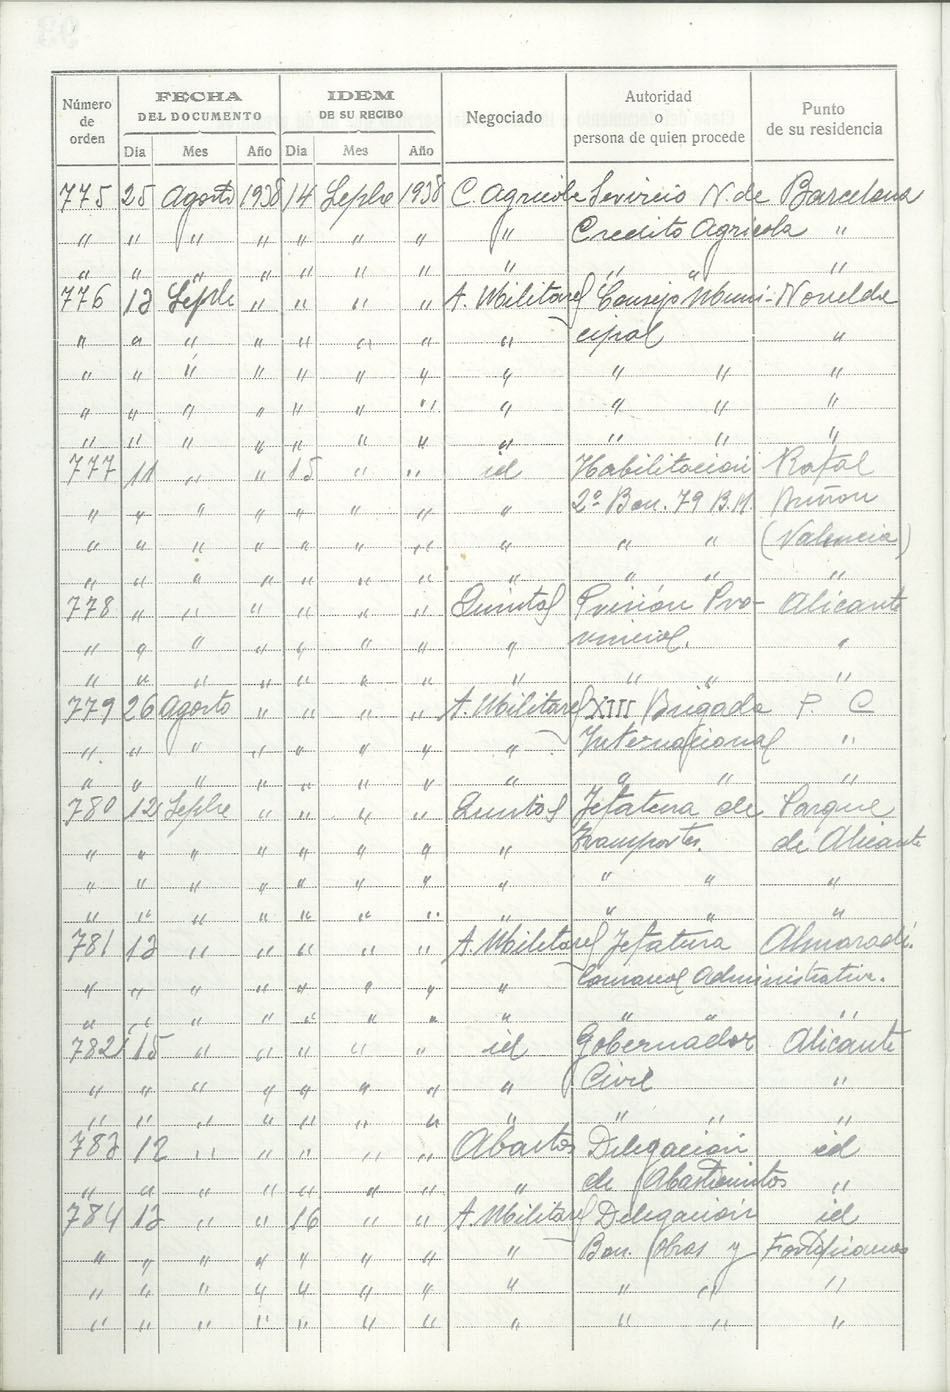 Número de orden FECHA DEL DOCUMENTO IDEM DE SU RECIBO Negociado Autoridad o persona de quien procede Punto de su residencia
Día Mes Año Día Mes Año
775 25 Agosto 1938 14 Sepbre 1938 C. Agricola Servicio N. de Barcelona
" " " " " " " " Credito Agricola "
" " " " " " " " " " "
776 13 Sepbre " " " " A. Militares Consejo Muni- Novelda
" " " " " " " " cipal "
" " " " " " " " " " "
" " " " " " " " " " "
" " " " " " " " " " "
777 11 " " 15 " " id Habilitacion Rafal
" " " " " " " " 2º Bon. 79 B.M.
" " " " " " " " " " (Valencia)
" " " " " " " " " " "
778 " " " " " " Quintas Prisión Pro- Alicante
" " " " " " " " vincial. "
" " " " " " " " " " "
779 26 Agosto " " " " A. Militares XIII Brigada P. C
" " " " " " " " Internacional "
" " " " " " " " " " "
780 12 Sepbre " " " " Quintas Jefatura de Parque
" " " " " " " " Transportes. de Alicante
" " " " " " " " " " "
" " " " " " " " " " "
781 13 " " " " " A. Militares Jefatura Almoradí.
" " " " " " " " Comarcal Administrativa.
" " " " " " " " " " "
782 15 " " " " " id Gobernador Alicante
" " " " " " " " Civil "
" " " " " " " " " " "
783 12 " " " " " Abastos Delegación id
" " " " " " " " de Abastecimientos "
784 13 " " 16 " " A. Militares Delegación id
" " " " " " " " Bon. Obras y Fortificaciones
" " " " " " " " " " "
" " " " " " " " " " "